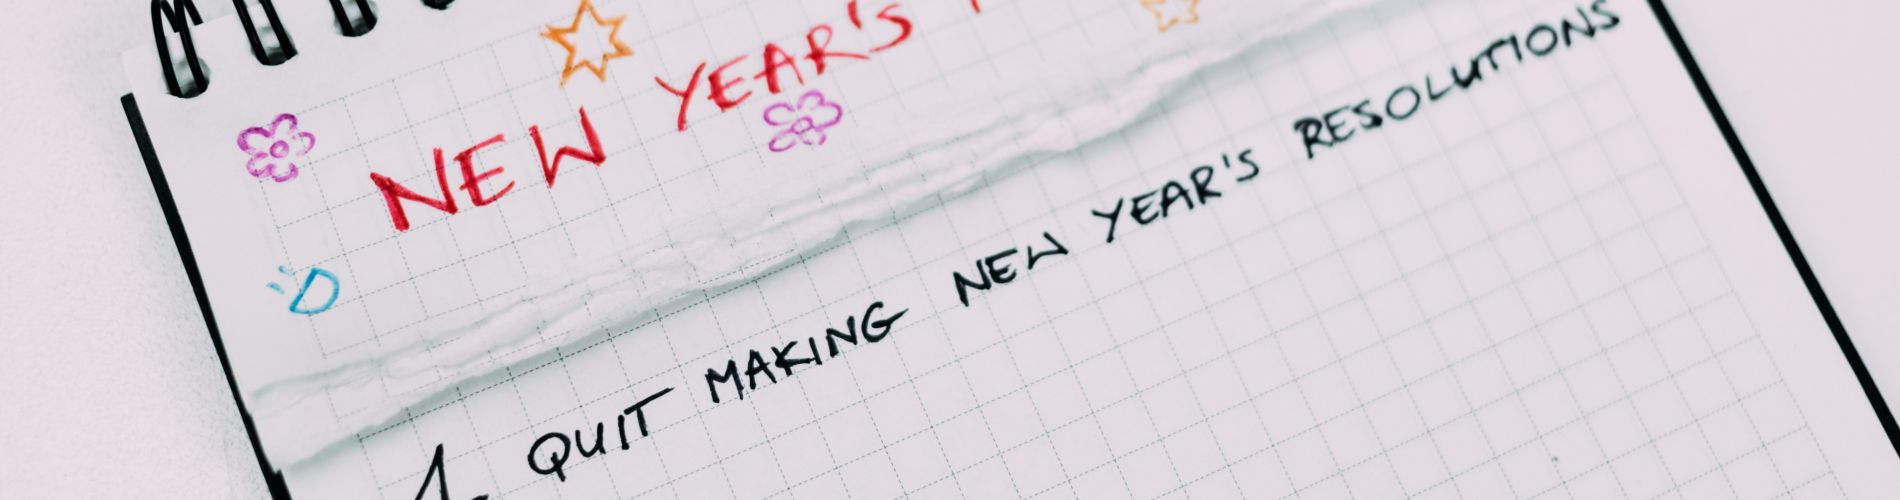 NEW YEAR'S
1 QUIT MAKING NEW YEAR'S RESOLUTIONS